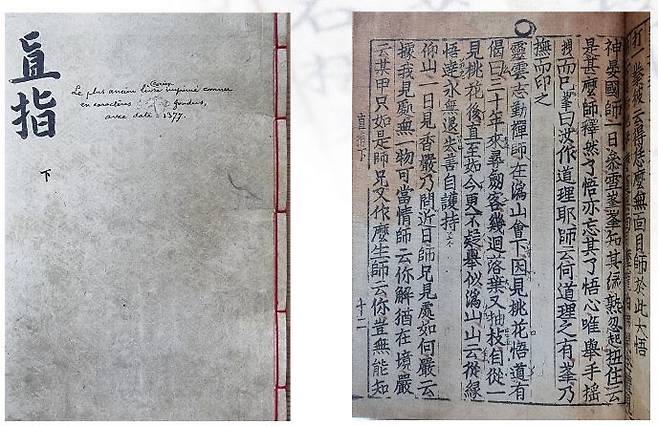 直指
下
Coréen
Le plus ancien livre imprimé connu
en caractères fondus,
avec date = 1377.
神晏國師一日參雪峯峯知其緣熟忽起扭住云
是甚麽師釋然了悟亦忘其了悟心唯擧手搖
拽而已峯曰汝作道理耶師云何道理之有峯乃
撫而印之
靈雲志勤禪師在潙山會下因見桃花悟道有
偈曰三十年來尋劒客幾迴落葉又抽枝自從一
見桃花後直至如今更不疑擧似潙山山云從緣
悟達永無退失善自護持
仰山一日見香嚴乃問近日師兄見處如何嚴云
據我見處無一物可當情師云你解猶在境嚴
云某甲只如是師兄又作麽生師云你豈無能知
直指下
十二